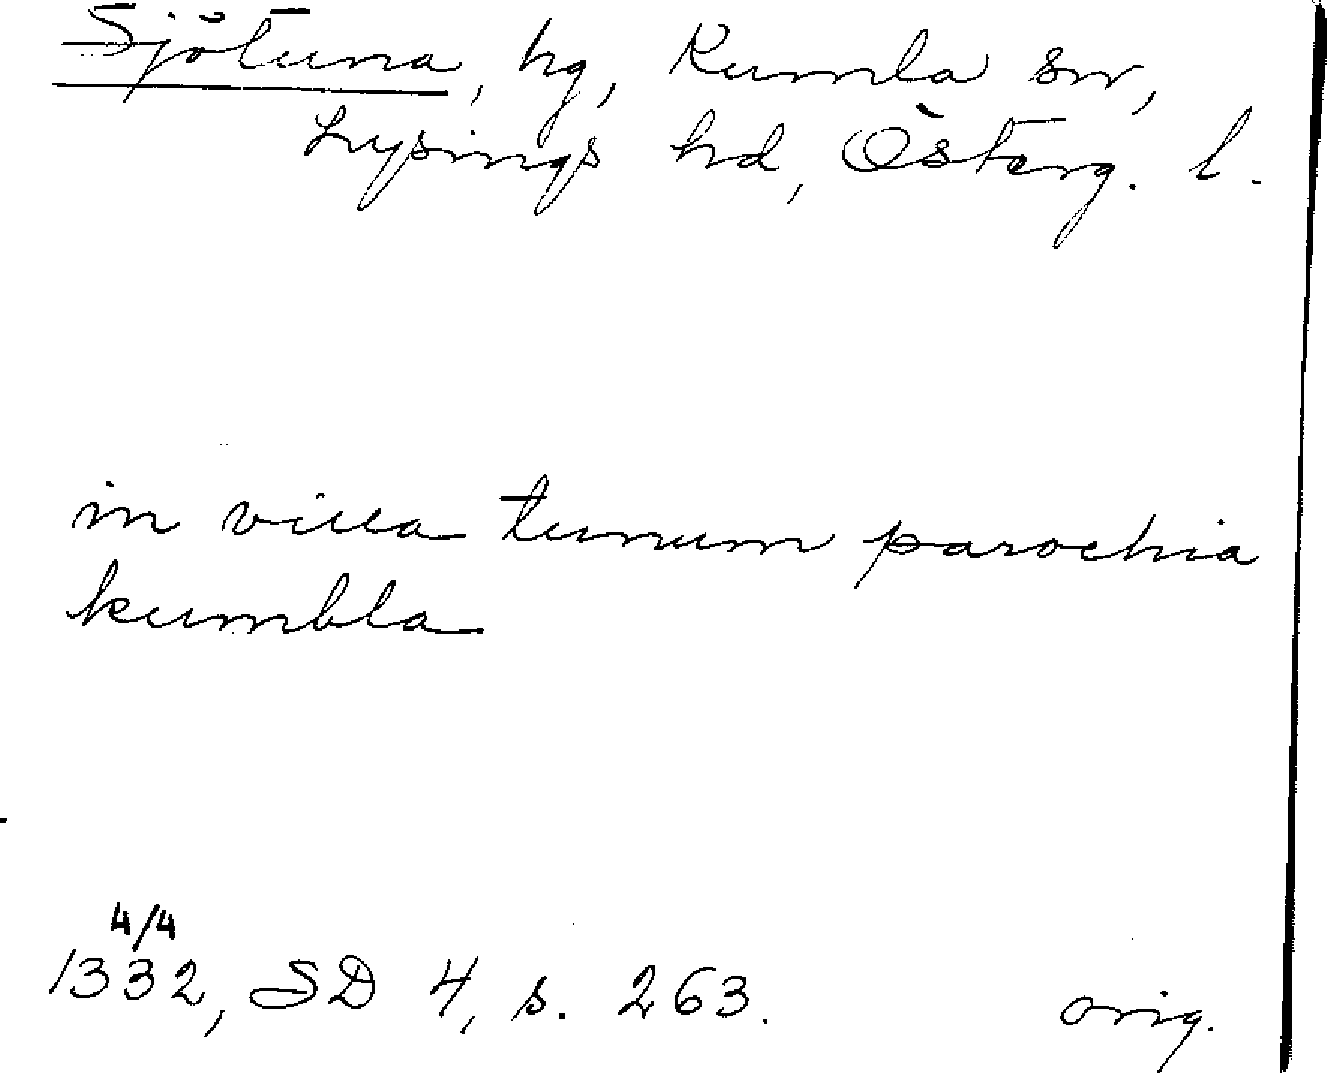 Sjötuna, hg, Kumla sn,
Lysings hd, Österg. l.
in villa tunum parochia
kumbla
4/4
1332, SD 4, s. 263. orig.